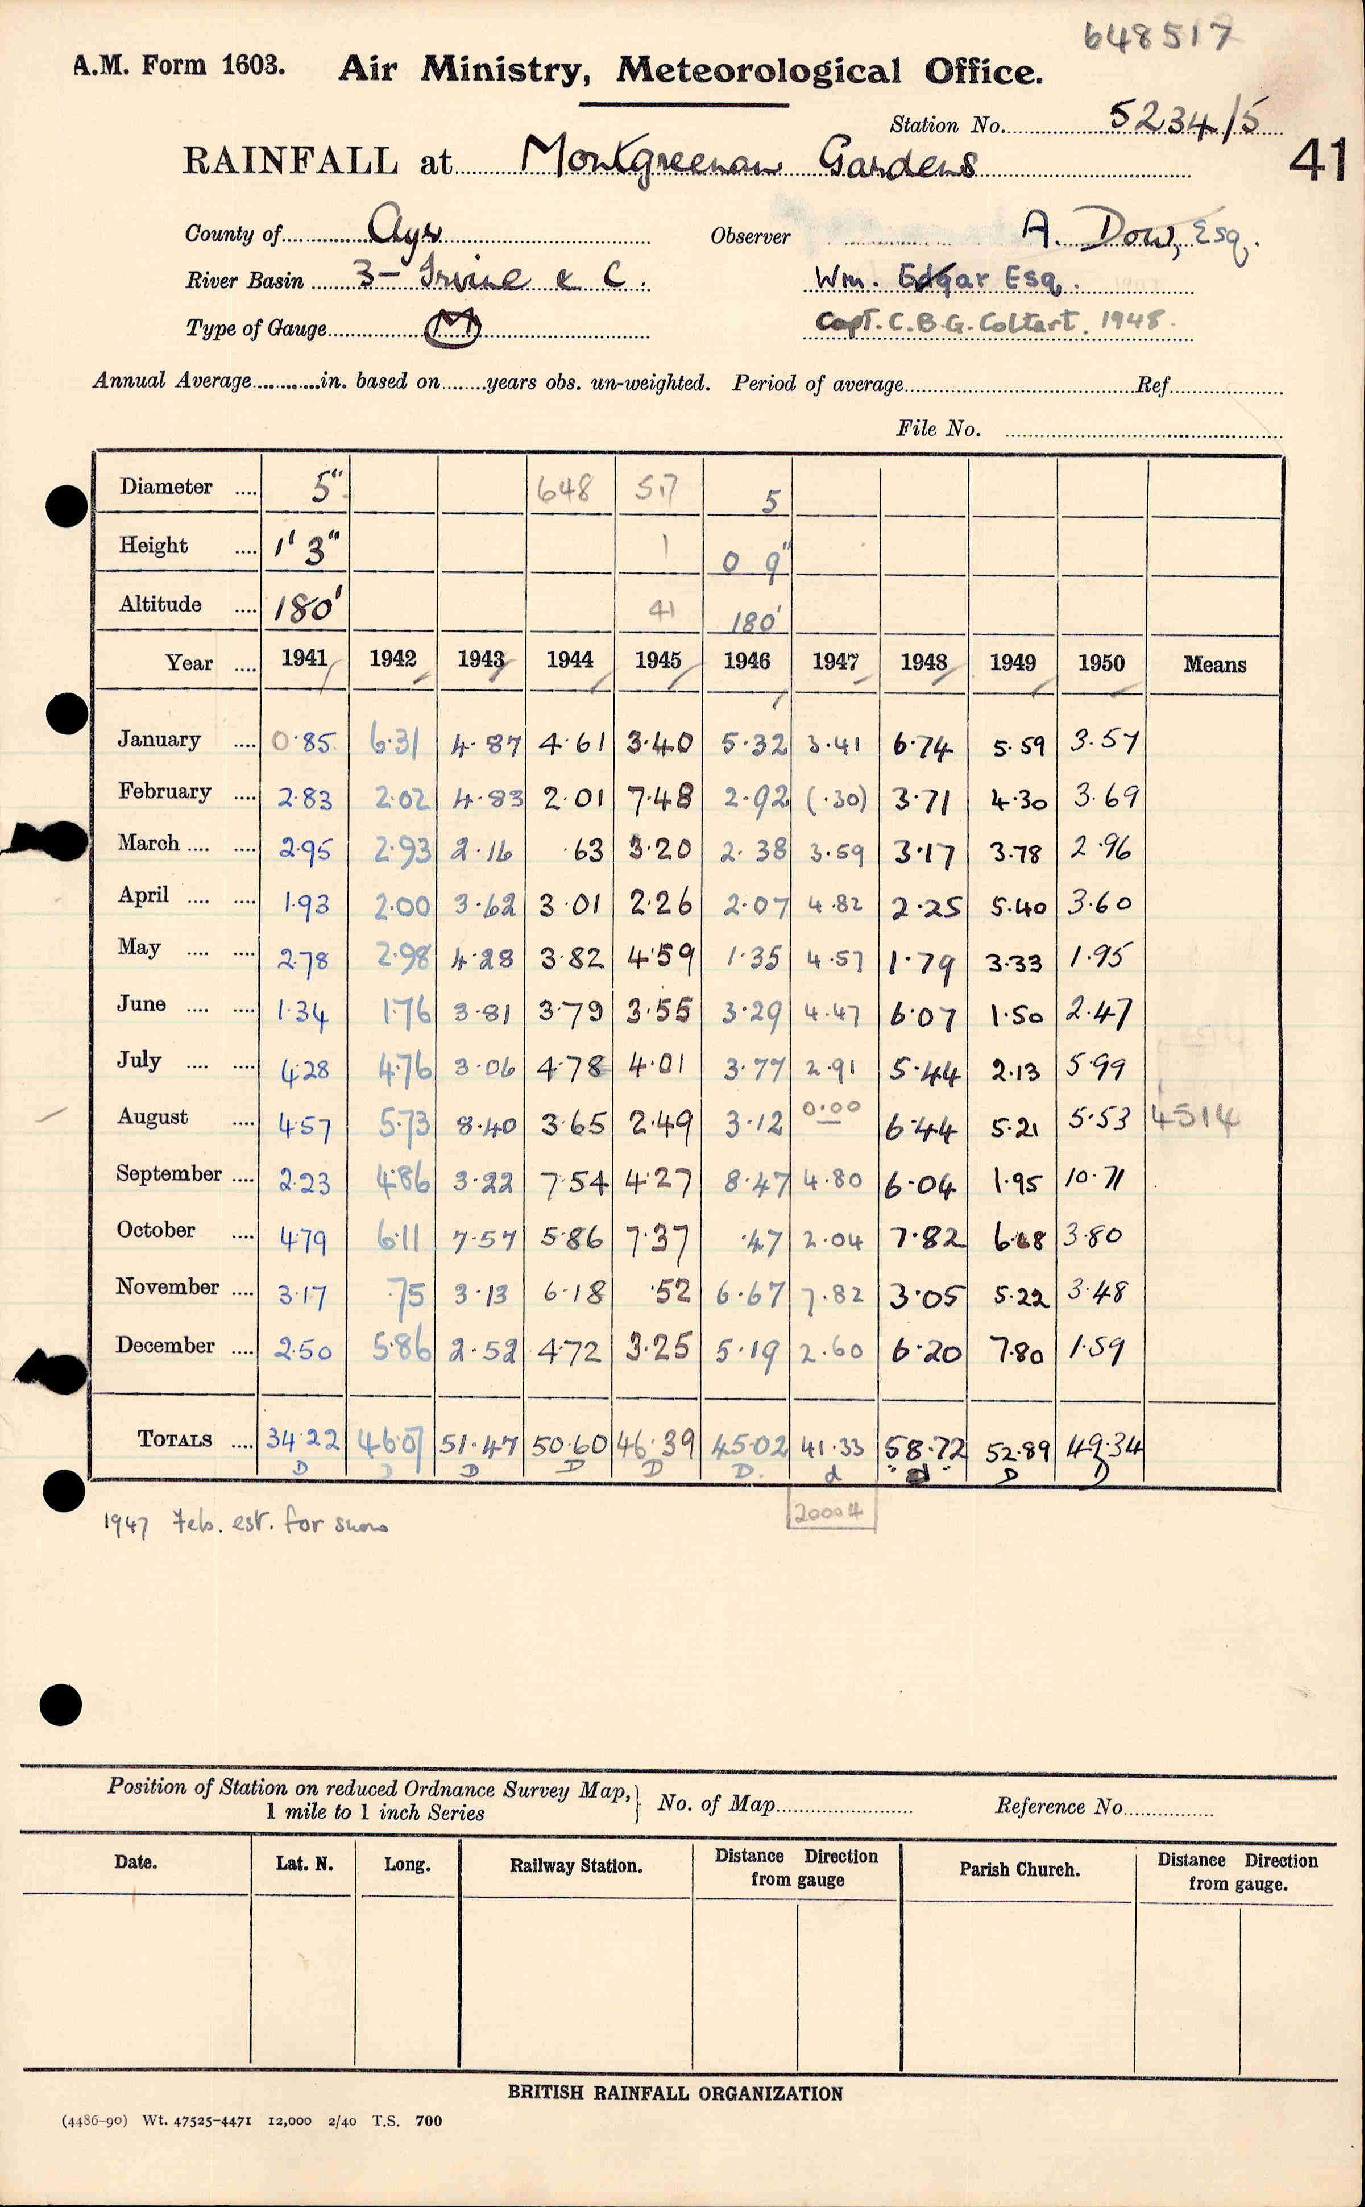 648517
A.M. Form 1603. Air Ministry, Meteorological Office.
Station No. 5234/5
RAINFALL at Montgreenan Gardens 41
County of Ayr Observer A. Dow, Esq.
River Basin 3- Irvine & C. Wm. Edgar Esq.
Type of Gauge M Capt. C.B.G. Coltart. 1948.
Annual Average in. based on years obs. un-weighted. Period of average Ref.
File No.
Diameter 5" 648 517 5
Height 1' 3" 1 0 9"
Altitude 180' 41 180'
Year 1941 1942 1943 1944 1945 1946 1947 1948 1949 1950 Means
January 0.85 6.31 4.87 4.61 3.40 5.32 3.41 6.74 5.59 3.57
February 2.83 2.02 4.83 2.01 7.48 2.92 (.30) 3.71 4.30 3.69
March 2.95 2.93 2.16 .63 3.20 2.38 3.59 3.17 3.78 2.96
April 1.93 2.00 3.62 3.01 2.26 2.07 4.82 2.25 5.40 3.60
May 2.78 2.98 4.28 3.82 4.59 1.35 4.57 1.79 3.33 1.95
June 1.34 1.76 3.81 3.79 3.55 3.29 4.47 6.07 1.50 2.47
July 4.28 4.76 3.06 4.78 4.01 3.77 2.91 5.44 2.13 5.99
August 4.57 5.73 8.40 3.65 2.49 3.12 0.00 6.44 5.21 5.53 4514
September 2.23 4.86 3.22 7.54 4.27 8.47 4.80 6.04 1.95 10.71
October 4.79 6.11 7.57 5.86 7.37 .47 2.04 7.82 6.68 3.80
November 3.17 .75 3.13 6.18 .52 6.67 7.82 3.05 5.22 3.48
December 2.50 5.86 2.52 4.72 3.25 5.19 2.60 6.20 7.80 1.59
TOTALS 34.22 46.07 51.47 50.60 46.39 45.02 41.33 58.72 52.89 49.34
D D D D D D d "d" D D
1947 Feb. est. for snow 20004
Position of Station on reduced Ordnance Survey Map, 1 mile to 1 inch Series No. of Map Reference No.
Date. Lat. N. Long. Railway Station. Distance Direction from gauge Parish Church. Distance Direction from gauge.
BRITISH RAINFALL ORGANIZATION
(4486-90) Wt. 47525-4471 12,000 2/40 T.S. 700